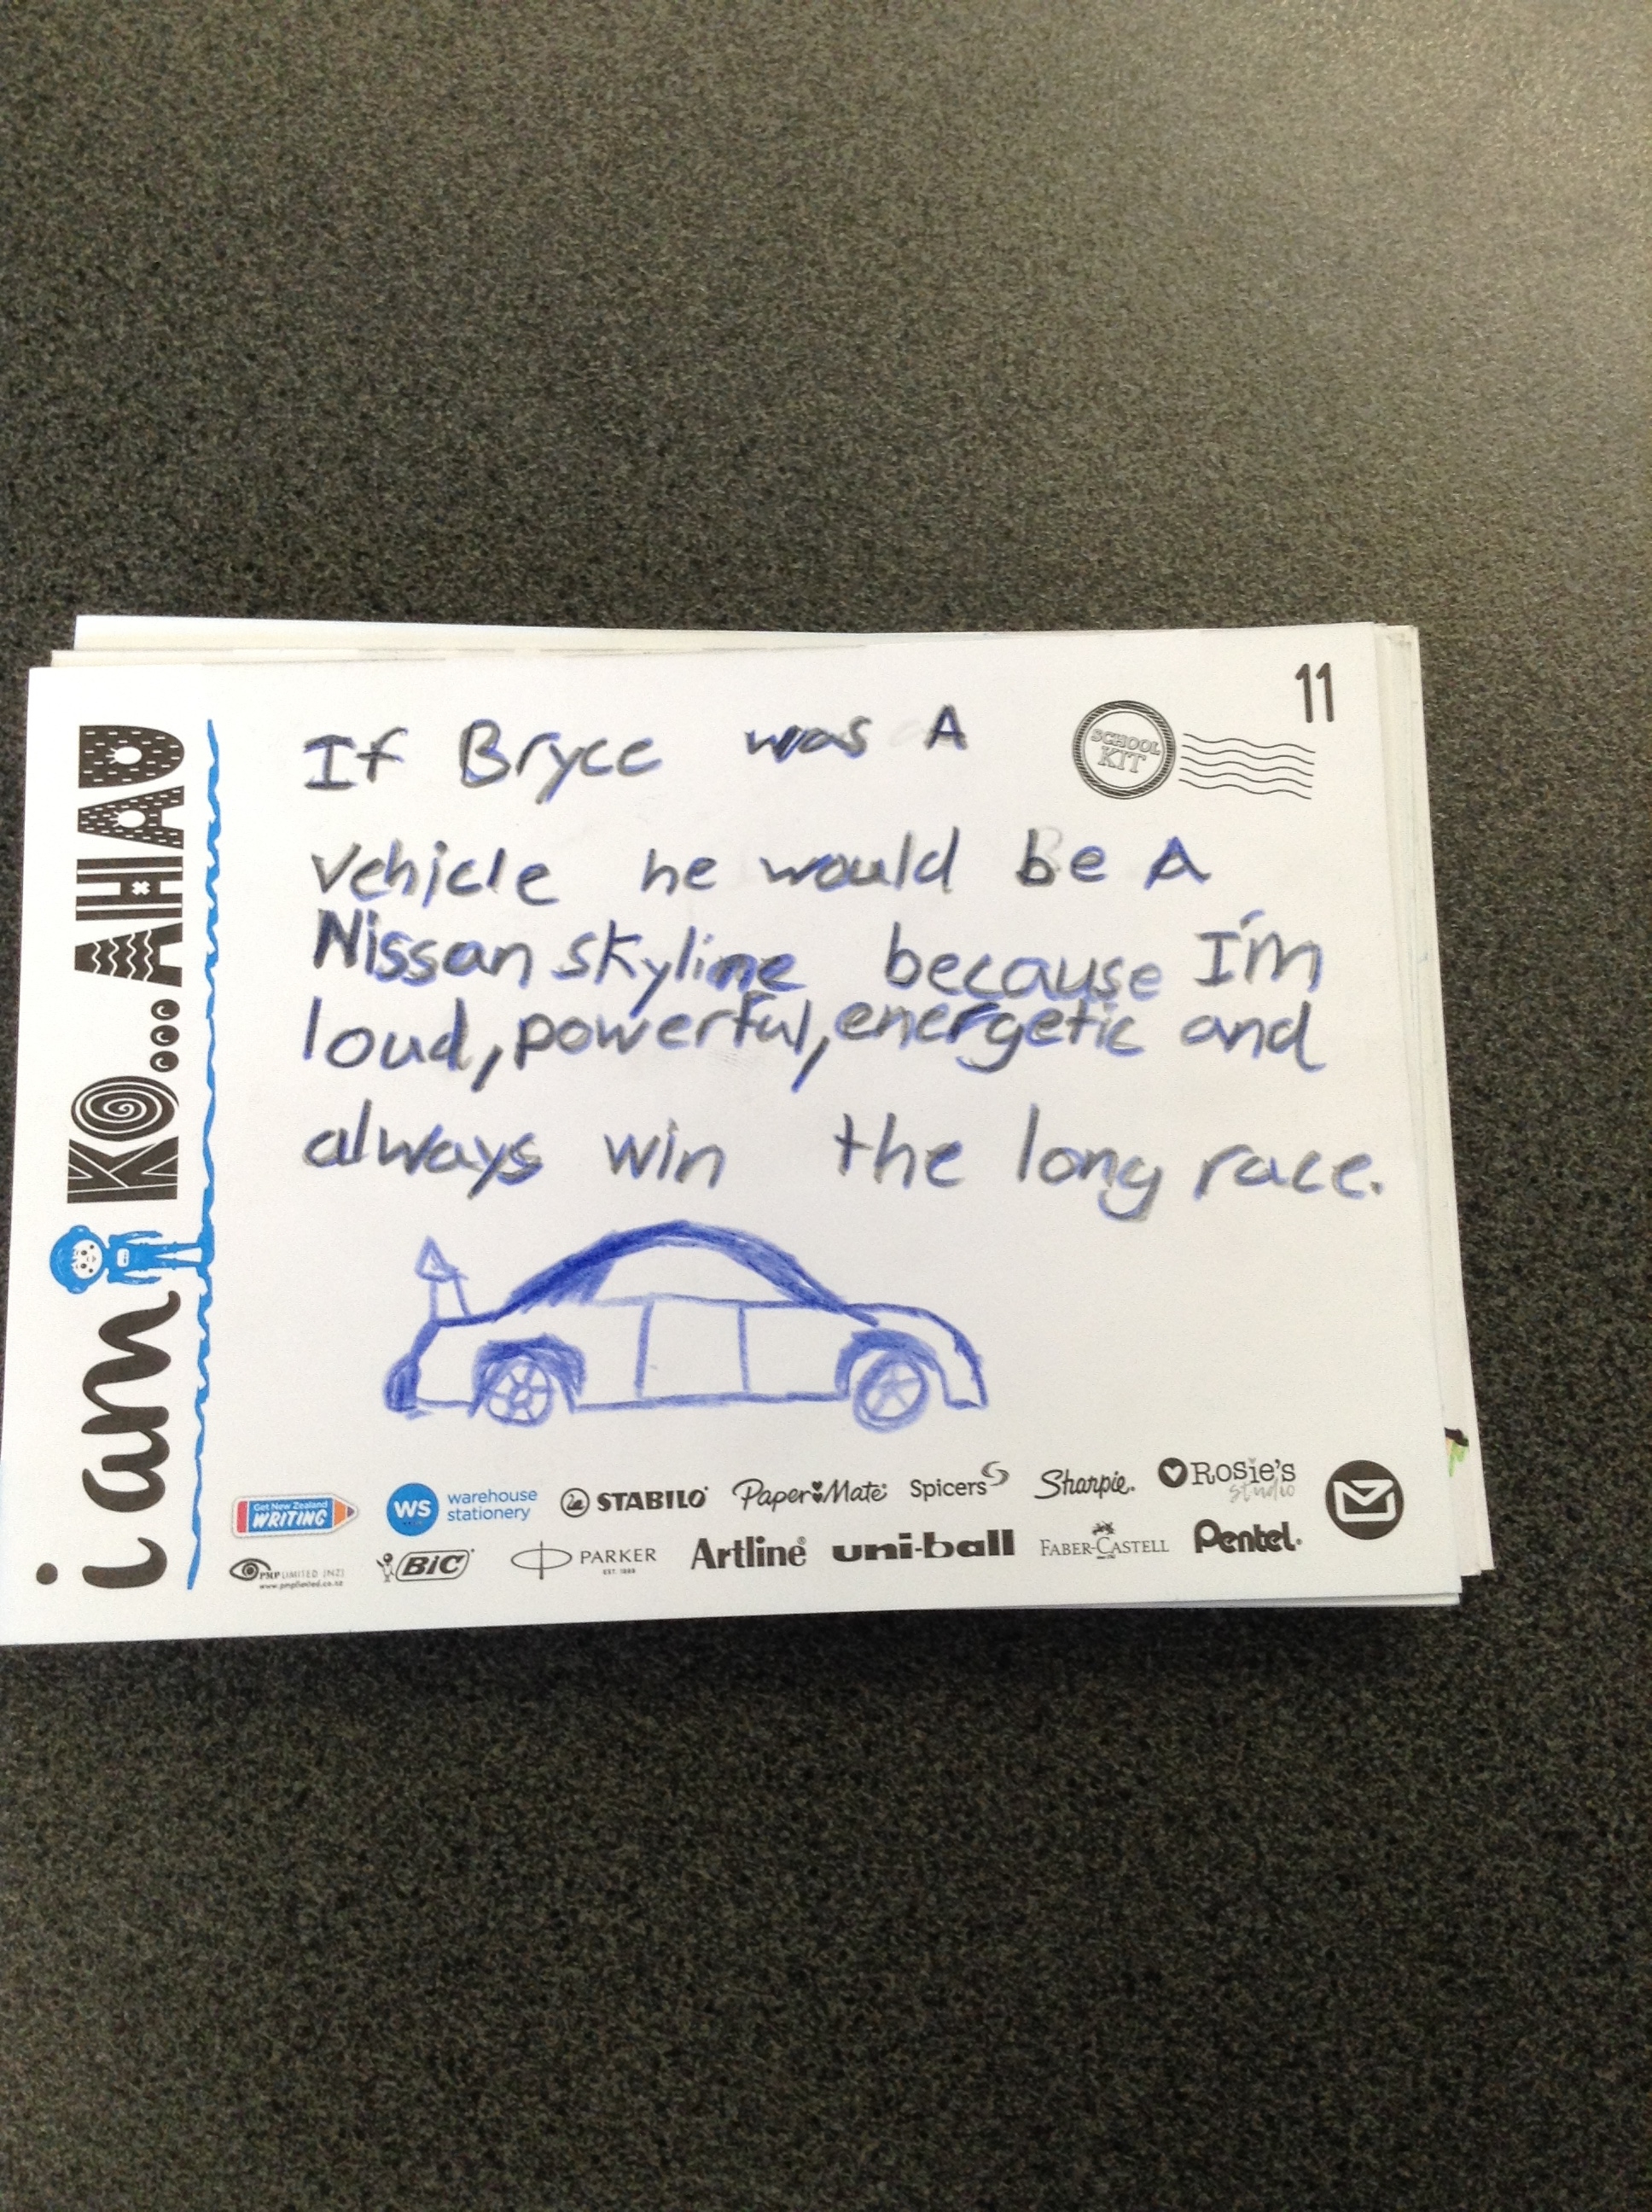 11
SCHOOL
KIT
If Bryce was A
vehicle he would be A
Nissan skyline because I'm
loud, powerful, energetic and
always win the long race.
i am KO...AHAU
Get New Zealand
WRITING
WS warehouse
stationery
STABILO
Paper Mate
Spicers
Sharpie.
Rosie's
studio
PMP LIMITED (NZ)
www.pmplimited.co.nz
BIC
PARKER
EST. 1888
Artline
uni-ball
FABER-CASTELL
Pentel